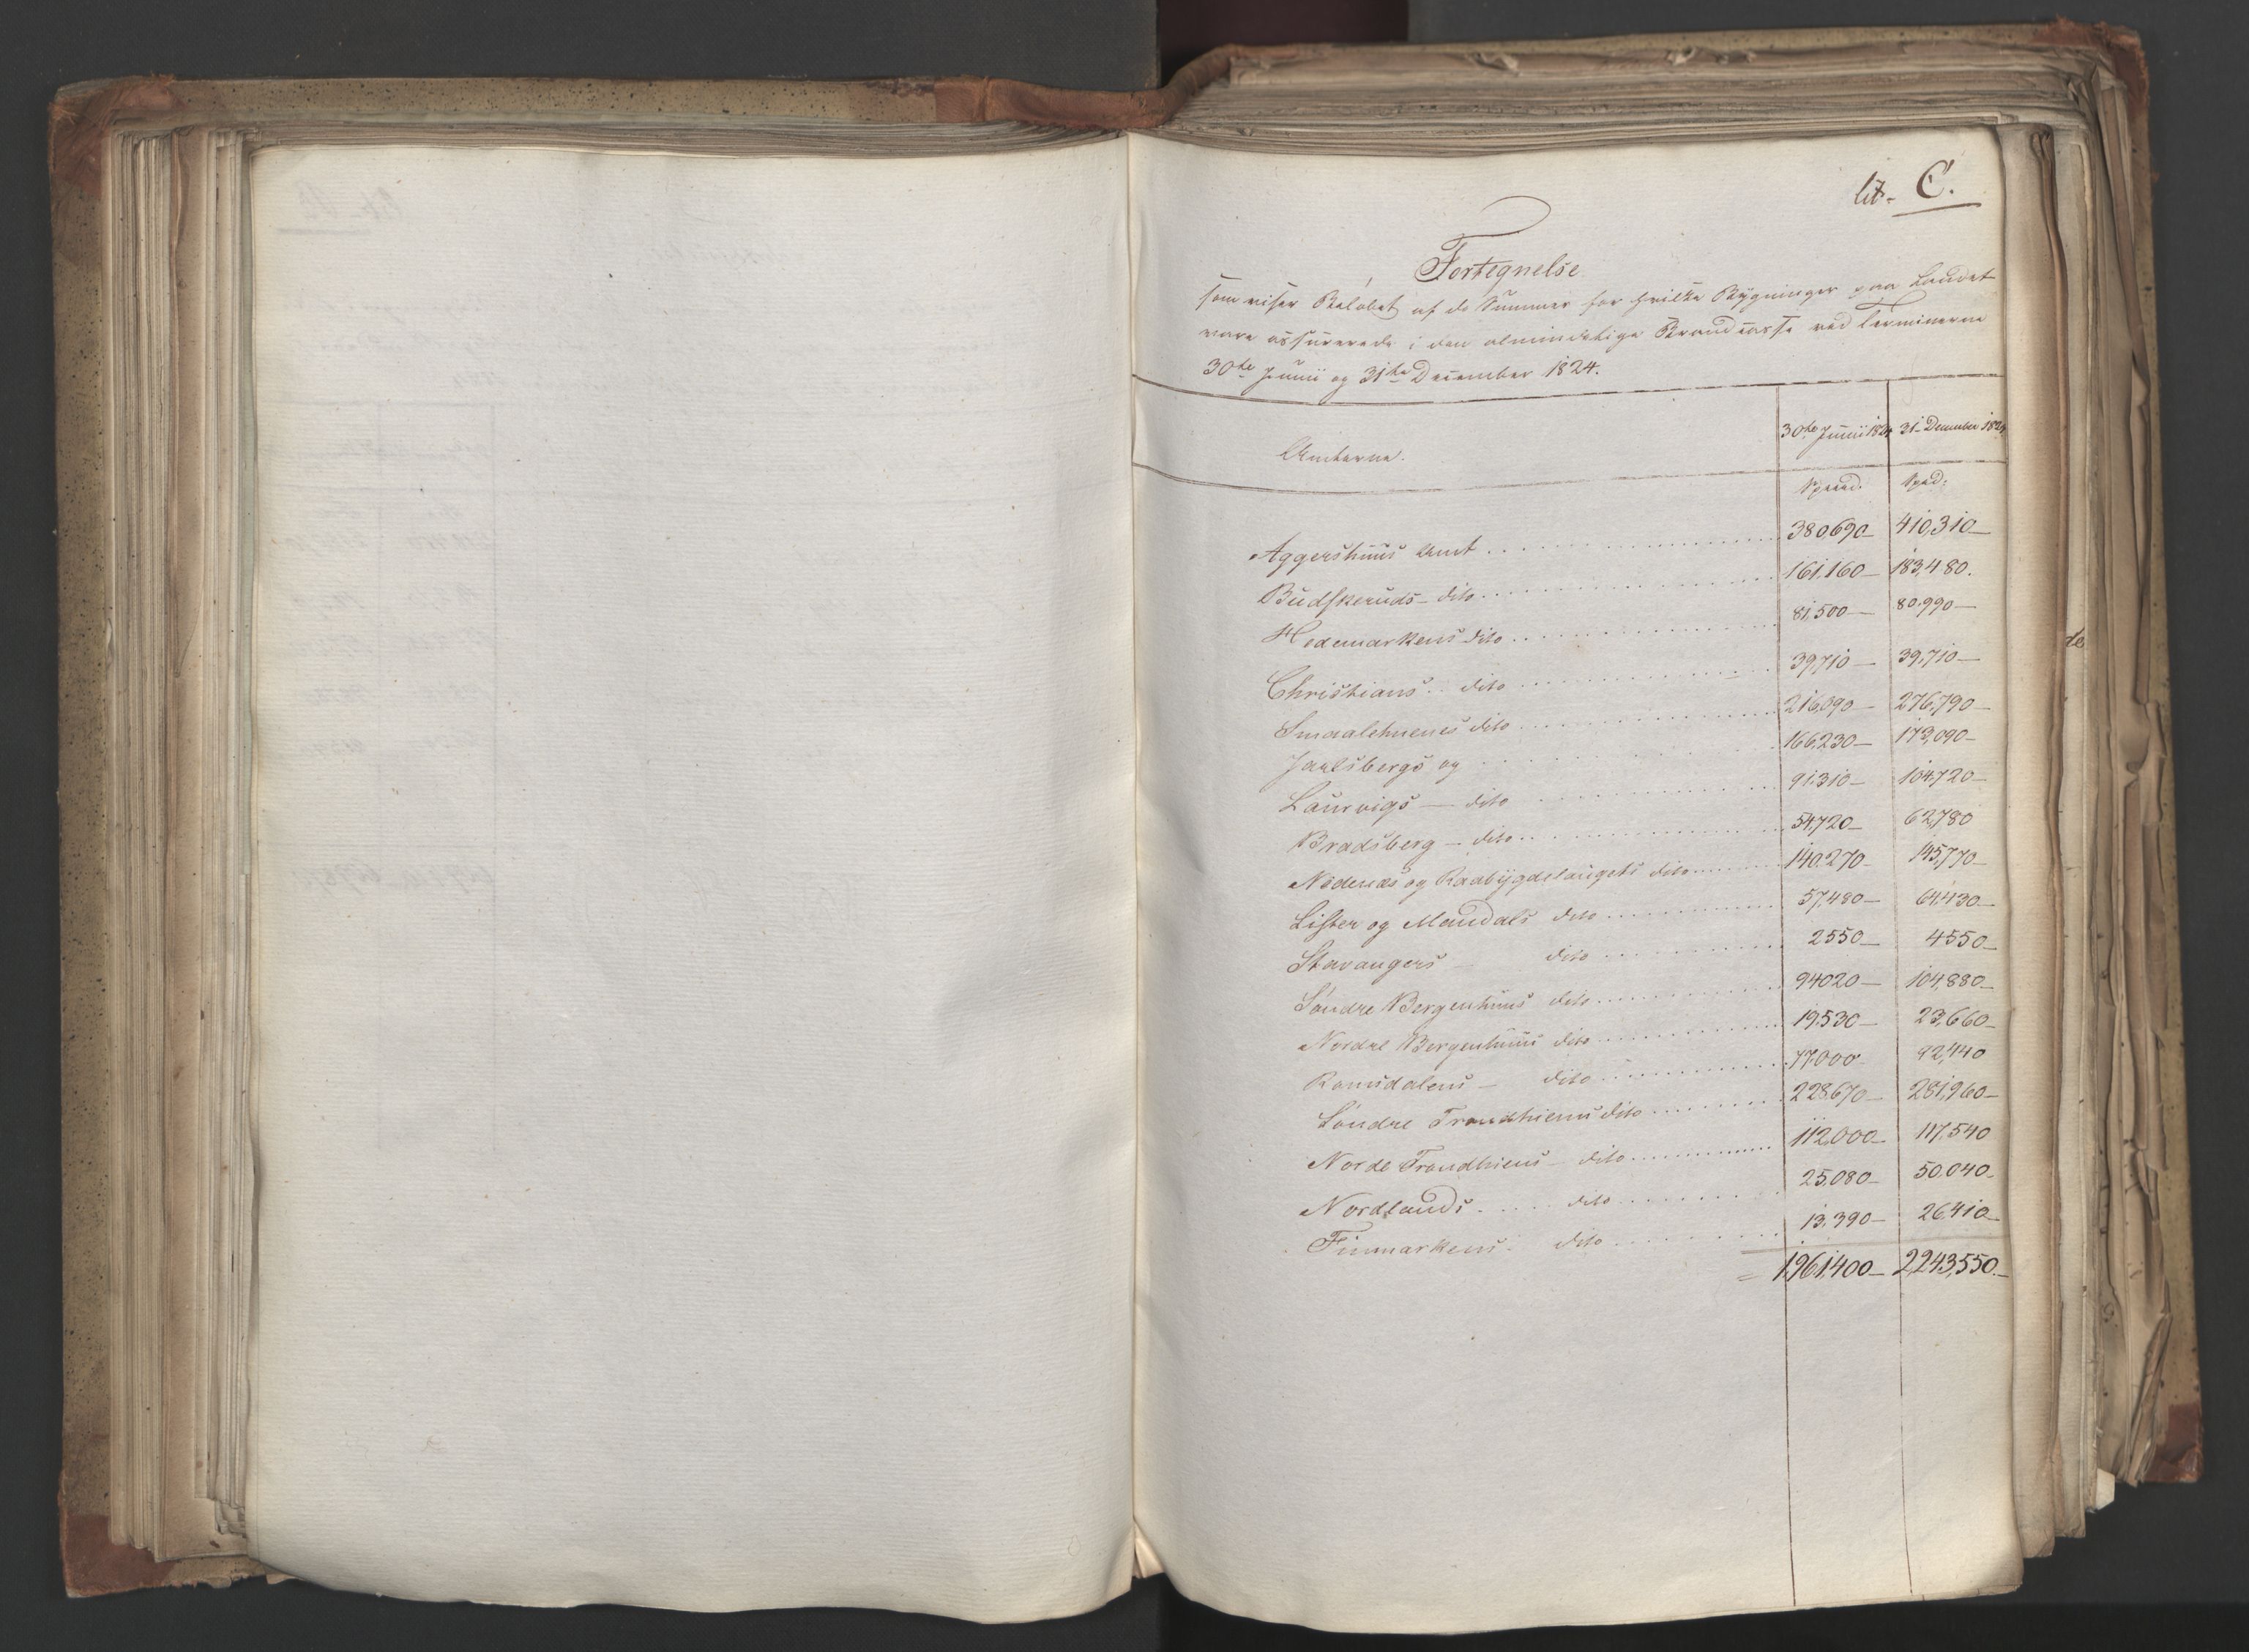 lit. C.
Fortegnelse
som viser Beløbet af de Summer for hvilke Bygninger paa Landet
vare assurerede i den almindelige Brandcasse ved Terminerne
30te Junii og 31te December 1824.
Amterne. 30te Junii 1824 31 December 1824
Specd. Spd:
Aggershuus Amt 380,690 410,310
Budskeruds dito 161,160 183,480.
Hedemarkens dito 81,500 80,990
Christians dito 39,710 39,710
Smaalehnenes dito 216,090 276,790
Jarlsbergs og 166,230 173,090
Laurvigs dito 91,310 104,720
Bradsberg dito 54,720 62,780
Nedenæs og Raabygdelaugets dito 140,270 145,770
Lister og Mandals dito 57,480 64,430
Stavangers dito 2550 4550
Søndre Bergenhuus dito 94020 104,880
Nordre Bergenhuus dito 19,530 23,660
Romsdalens dito 77,000 92,440
Søndre Trondhiems dito 228,670 281,960
Norde Trondhiems dito 112,000 117,540
Nordlands dito 25,080 50,040
Finmarkens dito 13,390 26,410
= 1,961,400 2,243,550.